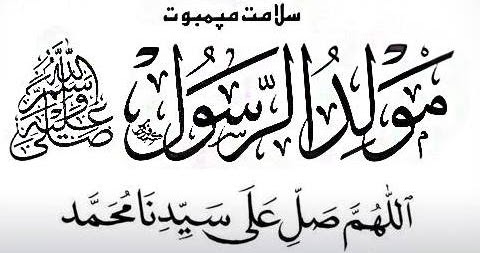 سلامت مڽمبوت
مَوْلِدُ الرَّسُوْل صلى الله عليه وسلم
اَللّٰهُمَّ صَلِّ عَلَى سَيِّدِنَا مُحَمَّد